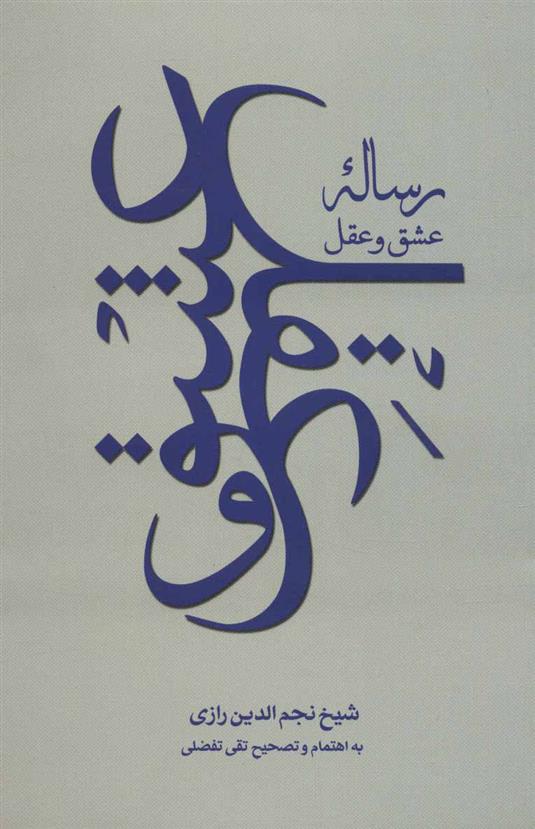 رسالهٔ
عشق و عقل
عشق و عقل
شیخ نجم الدین رازی
به اهتمام و تصحیح تقی تفضلی